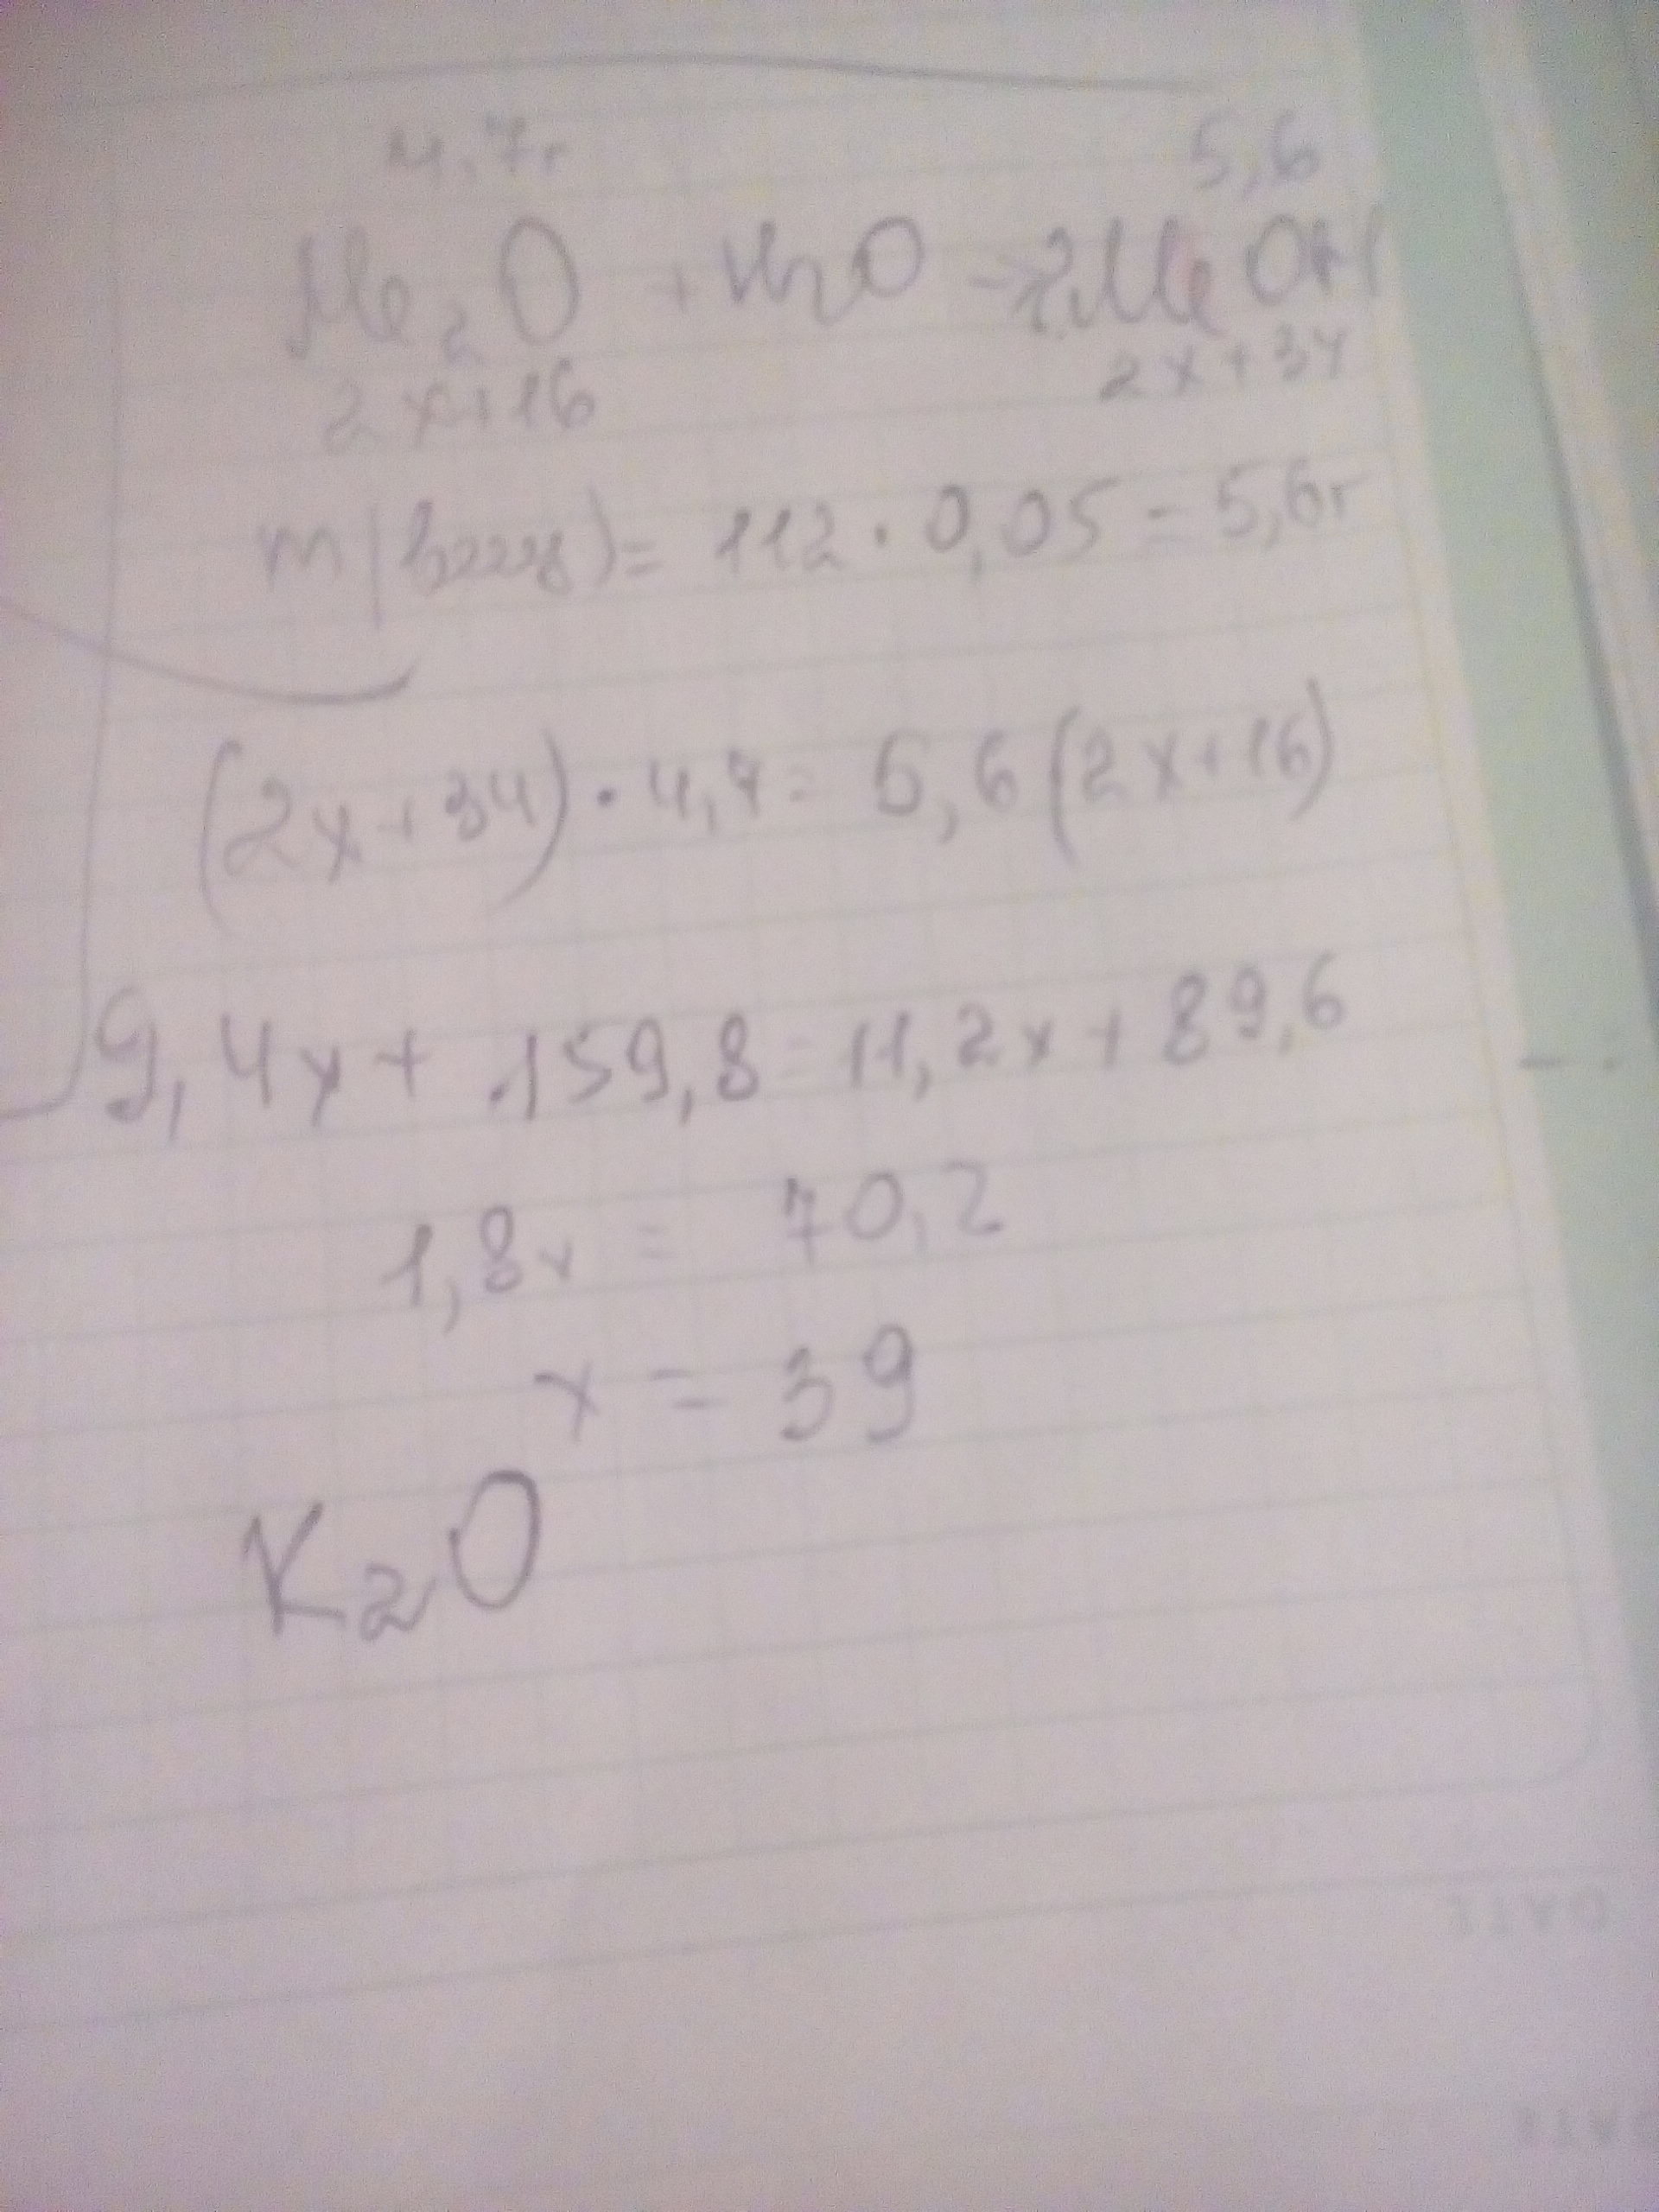 4.7г 5,6
Me₂O + H₂O → 2MeOH
2x+16 2x+34
m( )= 112 · 0,05 = 5,6г
(2x+34) · 4,7 = 5,6(2x+16)
9,4x + 159,8 = 11,2x + 89,6
1,8x = 70,2
x = 39
K₂O
DATE
DATE